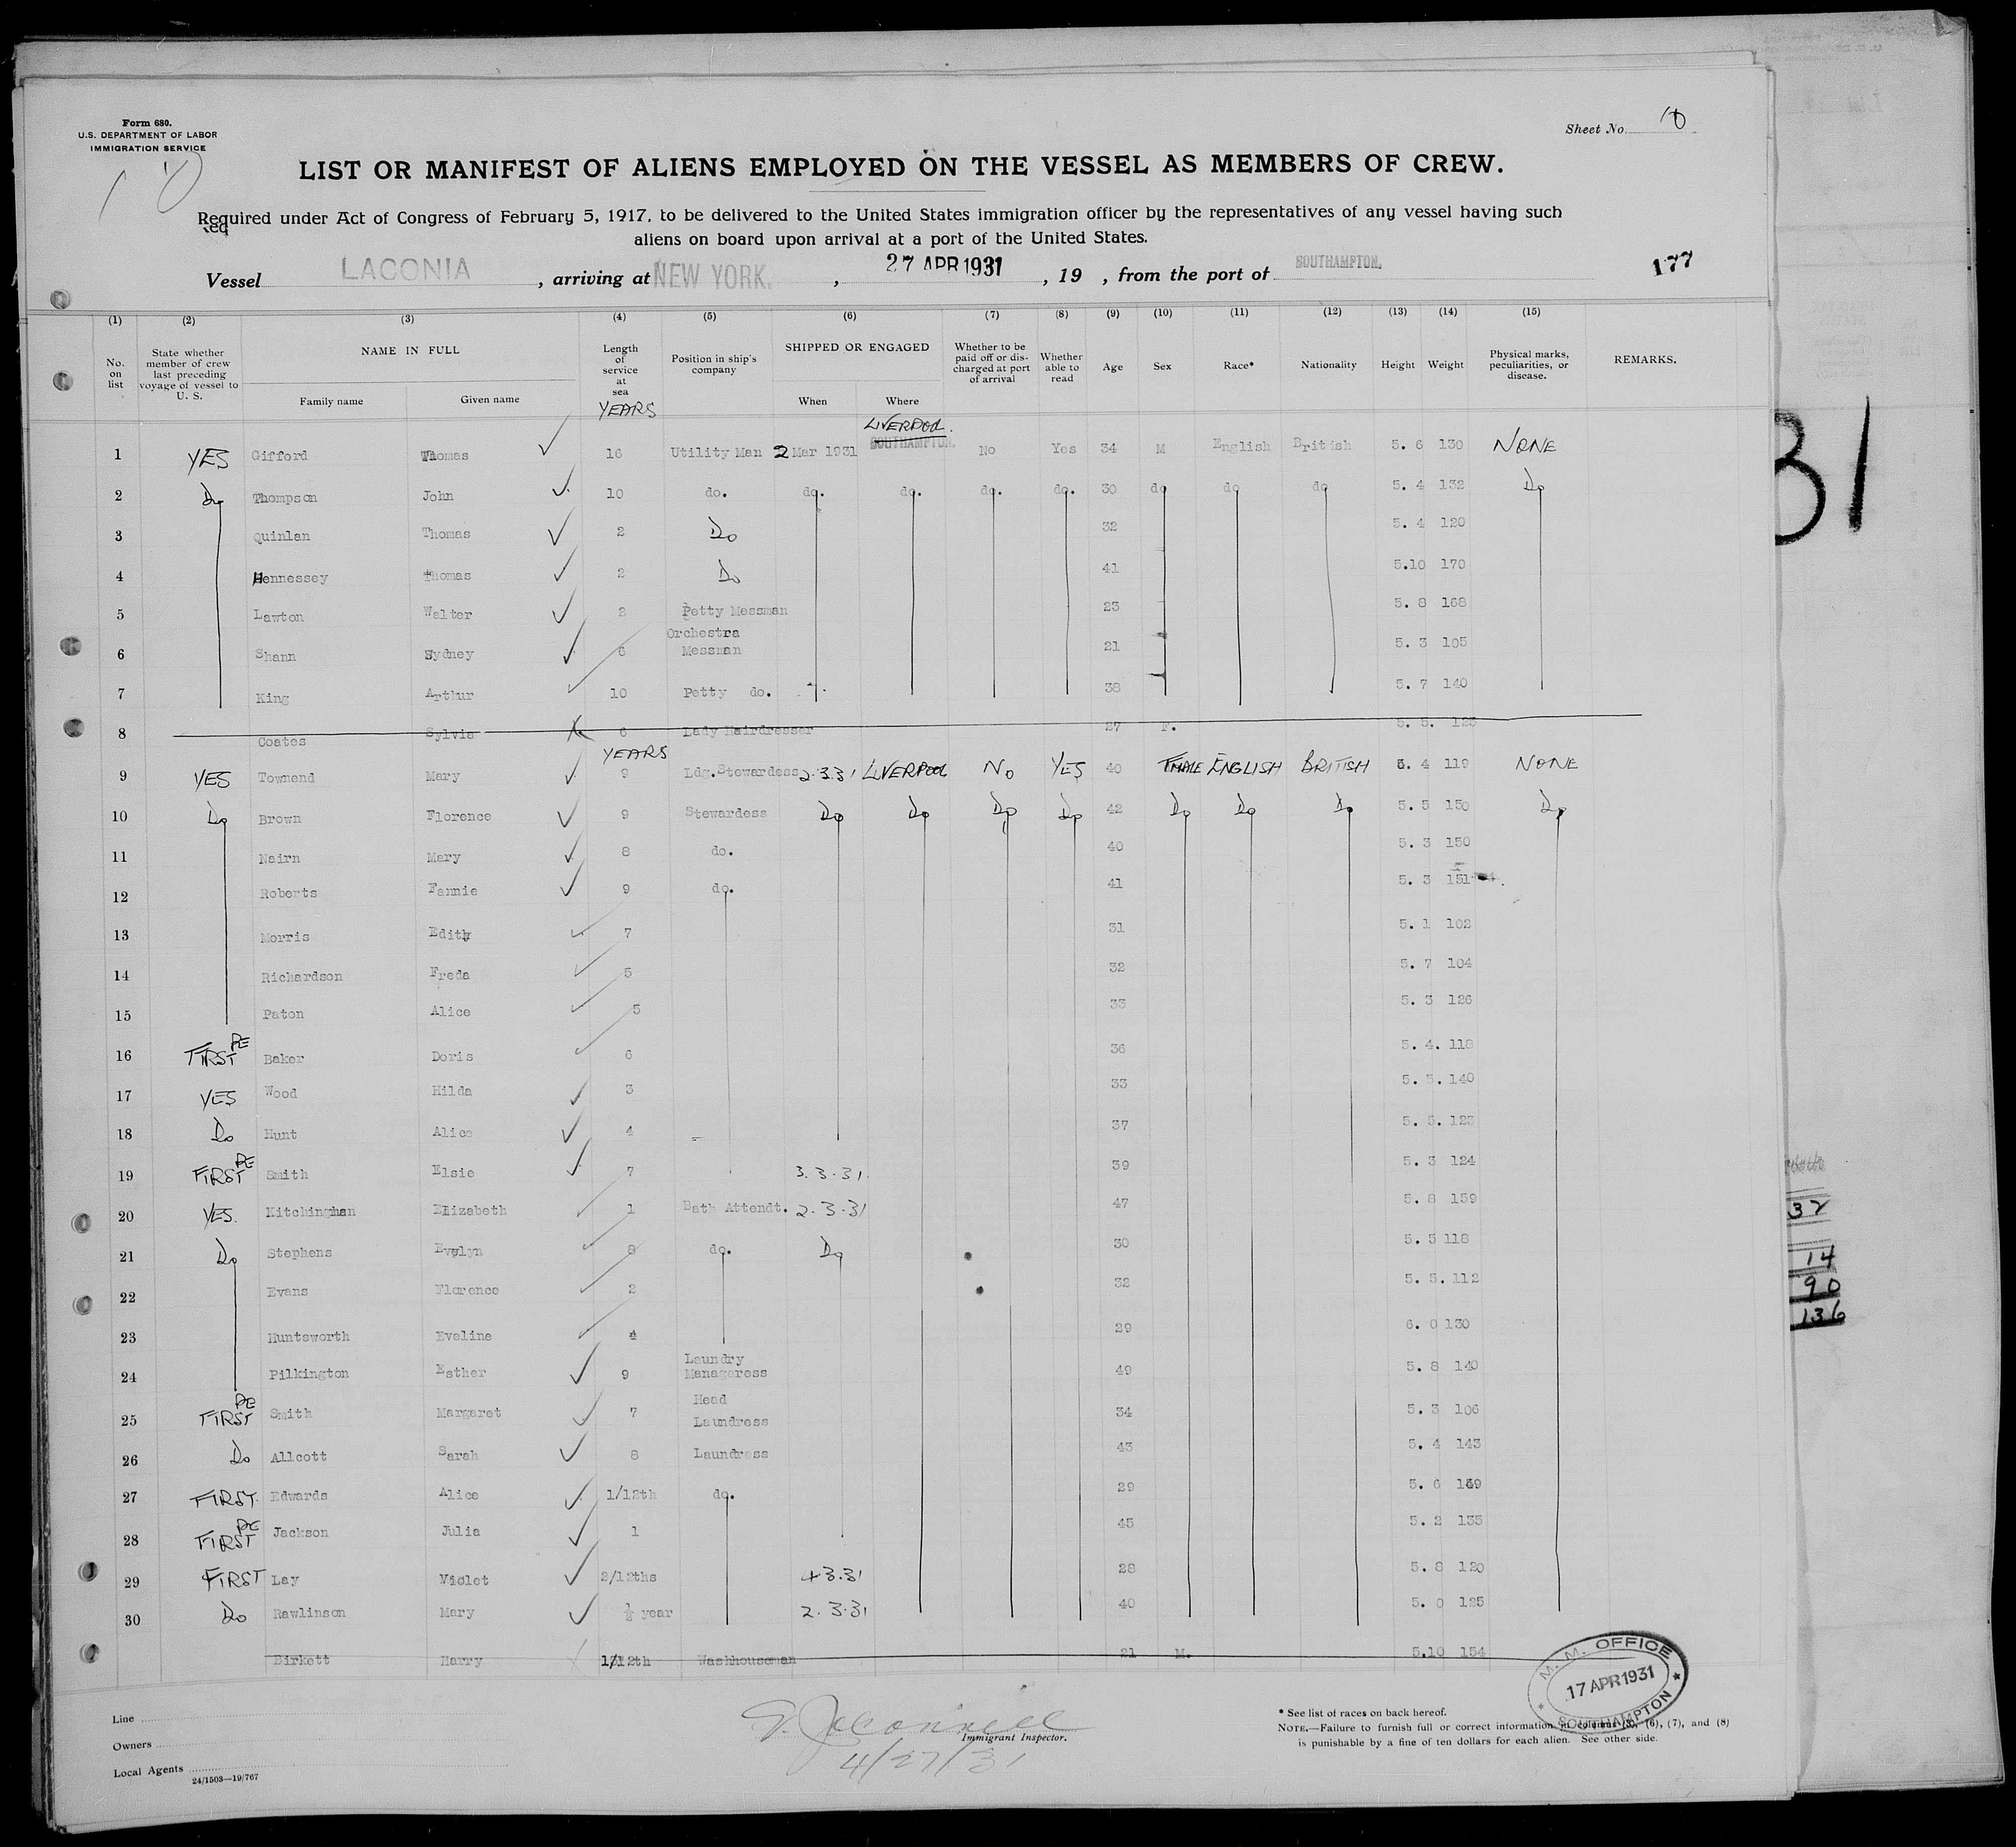 Form 680.
U.S. DEPARTMENT OF LABOR
IMMIGRATION SERVICE
Sheet No. 10
10
LIST OR MANIFEST OF ALIENS EMPLOYED ON THE VESSEL AS MEMBERS OF CREW.
Required under Act of Congress of February 5, 1917, to be delivered to the United States immigration officer by the representatives of any vessel having such
aliens on board upon arrival at a port of the United States.
Vessel LACONIA, arriving at NEW YORK, 27 APR 1931, 19 , from the port of SOUTHAMPTON. 177
(1) (2) (3) (4) (5) (6) (7) (8) (9) (10) (11) (12) (13) (14) (15)
No. on list State whether member of crew last preceding voyage of vessel to U. S. NAME IN FULL Family name Given name Length of service at sea Position in ship's company SHIPPED OR ENGAGED When Where Whether to be paid off or discharged at port of arrival Whether able to read Age Sex Race* Nationality Height Weight Physical marks, peculiarities, or disease. REMARKS.
YEARS
LIVERPOOL.
1 YES Gifford Thomas 16 Utility Man 2 Mar 1931 SOUTHAMPTON. No Yes 34 M English British 5. 6 130 NONE
2 Do Thompson John 10 do. do. do. do. do. 30 do do do 5. 4 132 Do
3 Quinlan Thomas 2 Do 32 5. 4 120
4 Hennessey Thomas 2 Do 41 5.10 170
5 Lawton Walter 2 Petty Messman 23 5. 8 168
6 Shann Sydney 6 Orchestra Messman 21 5. 3 105
7 King Arthur 10 Petty do. 38 5. 7 140
8 Coates Sylvia 6 Lady Hairdresser 27 F. 5. 5.
YEARS
9 YES Townend Mary 9 Ldg. Stewardess 2.3.31 LIVERPOOL No YES 40 ENGLISH BRITISH 5. 4 119 NONE
10 Do Brown Florence 9 Stewardess Do Do Do Do 42 Do Do Do 5. 5 150 Do
11 Nairn Mary 8 do. 40 5. 3 150
12 Roberts Fannie 9 do. 41 5. 3 151
13 Morris Edith 7 31 5. 1 102
14 Richardson Freda 5 32 5. 7 104
15 Paton Alice 5 33 5. 3 126
16 FIRST RE Baker Doris 6 36 5. 4. 118
17 YES Wood Hilda 3 33 5. 5. 140
18 Do Hunt Alice 4 37 5. 5. 123
19 FIRST RE Smith Elsie 7 3.3.31. 39 5. 3 124
20 YES. Kitchingman Elizabeth 1 Bath Attendt. 2.3.31 47 5. 8 159
21 Do Stephens Evelyn 8 do. Do 30 5. 5 118
22 Evans Florence 2 32 5. 5. 112
23 Huntsworth Eveline 4 29 6. 0 130
24 Pilkington Esther 9 Laundry Manageress 49 5. 8 140
25 FIRST RE Smith Margaret 7 Head Laundress 34 5. 3 106
26 Do Allcott Sarah 8 Laundress 43 5. 4 143
27 FIRST. Edwards Alice 1/12th do. 29 5. 6
28 FIRST RE Jackson Julia 1 45 5. 2 135
29 FIRST Lay Violet 2/12ths 4.3.31 28 5. 8 120
30 Do Rawlinson Mary ½ year 2.3.31 40 5. 0 125
Birkett Harry 1/12th Washhouseman 21 M. 5.10 154
M. M. OFFICE
17 APR 1931
SOUTHAMPTON
Line
Owners
Local Agents
24/1503—19/767
4/27/31
Immigrant Inspector.
* See list of races on back hereof.
NOTE.—Failure to furnish full or correct information in columns (3), (6), (7), and (8)
is punishable by a fine of ten dollars for each alien. See other side.
31
32
14
90
136